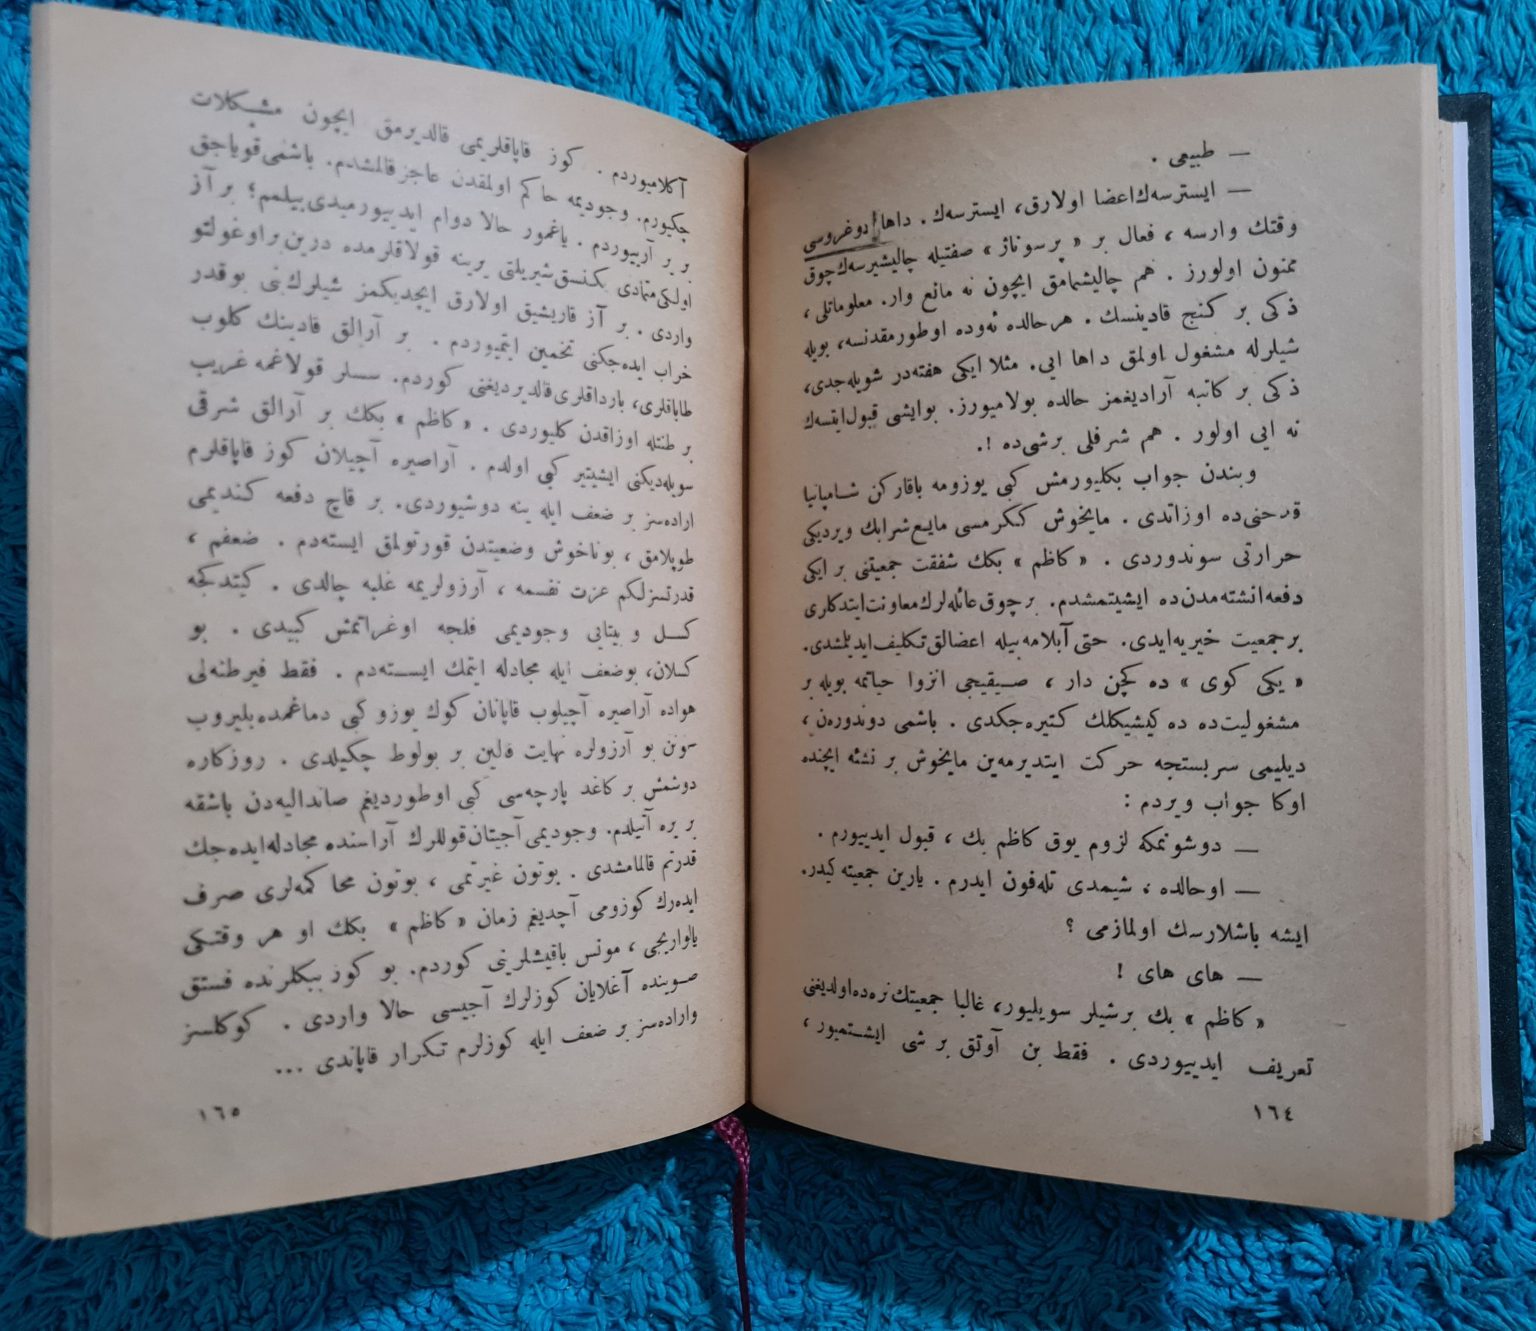 — طبیعی .
— ایسترسه‌ك اعضا اولارق، ایسترسه‌ك . داها دوغروسی
وقتك وارسه ، فعال بر « پرسوناژ » صفتیله چالیشیرسه‌ك چوق
ممنون اولورز . هم چالیشمامق ایچون نه مانع وار. معلوماتلی ،
ذکی بر کنج قادینسك . هر حالده ئه‌وده اوطورمقدنسه، بویله
شیلرله مشغول اولمق داها ایی. مثلا ایکی هفته‌در شویله جدی،
ذکی بر کاتبه آرادیغمز حالده بولامیورز. بو ایشی قبول ایتسه‌ك
نه ایی اولور . هم شرفلی بر شی‌ده !.
و بندن جواب بکلیورمش کبی یوزومه باقارکن شامپانیا
قدحنی‌ده اوزاتدی . مایخوش کنکرمسی مایع شرابك ویردیکی
حرارتی سوندوردی . « کاظم » بکك شفقت جمعیتنی بر ایکی
دفعه انشته مدن‌ده ایشیتمشدم. بر چوق عائله‌لرك معاونت ایتدکلری
بر جمعیت خیریه ایدی. حتی آبلامه بیله اعضالق تکلیف ایدیلمشدی.
« یکی کوی » ده کچن دار ، صیقیجی انزوا حیاتمه بویله بر
مشغولیت‌ده ده کیشیکلك کتیره‌جکدی . باشمی دوندورەن ،
دیلیمی سربستجه حرکت ایتدیرمه‌ین مایخوش بر نشئه ایچنده
اوکا جواب ویردم :
— دوشونمکه لزوم یوق کاظم بك ، قبول ایدییورم .
— او حالده ، شیمدی تله‌فون ایدرم . یارین جمعیته کیدر.
ایشه باشلارسك اولمازمی ؟
— های های !
« کاظم » بك بر شیلر سویلیور، غالبا جمعیتك نره‌ده اولدیغنی
تعریف ایدییوردی . فقط بن آرتق بر شی ایشتمیور ،
١٦٤
آکلامیوردم . کوز قاپاقلریمی قالدیرمق ایچون مشکلات
چکیورم. وجودیمه حاکم اولمقدن عاجز قالمشدم. باشمی قویاجق
بر یر آرییوردم . یاغمور حالا دوام ایدییورمیدی بیلمم؟ بر آز
اولکی متمادی یکنسق شیریلتی یرینه قولاقلرمده درین بر اوغولتو
واردی . بر آز قاریشیق اولارق ایچدیکمز شیلرك بنی بو قدر
خراب ایده‌جکنی تخمین ایتمیوردم . بر آرالق قادینك کلوب
طاباقلری، بارداقلری قالدیردیغنی کوردم. سسلر قولاغمه غریب
بر طنتله اوزاقدن کلیوردی . « کاظم » بکك بر آرالق شرقی
سویله‌دیکنی ایشیتیر کبی اولدم . آراصیره آچیلان کوز قاپاقلرم
اراده‌سز بر ضعف ایله ینه دوشیوردی. بر قاچ دفعه کندیمی
طوپلامق ، بو ناخوش وضعیتدن قورتولمق ایسته‌دم . ضعفم ،
قدرتسزلکم عزت نفسمه ، آرزولریمه غلبه چالدی . کیتدکجه
کسل و بیتابی وجودیمی فلجه اوغراتمش کبیدی . بو
کسلان، بو ضعف ایله مجادله ایتمك ایسته‌دم . فقط فیرطنه‌لی
هواده آراصیره آچیلوب قاپانان کوك یوزو کبی دماغمده بلیروب
سونن بو آرزولره نهایت قالین بر بولوط چکیلدی . روزکاره
دوشمش بر کاغد پارچه‌سی کبی اوطوردیغم صاندالیه‌دن باشقه
بر یره آتیلدم. وجودیمی آجیتان قوللرك آراسنده مجادله ایده‌جك
قدرتم قالمامشدی . بوتون غیرتمی ، بوتون محاکمه‌لری صرف
ایده‌رك کوزومی آچدیغم زمان « کاظم » بکك او هر وقتکی
یالواریجی ، مونس باقیشلرینی کوردم. بو کوز ببکلرنده فستق
صوینده آغلایان کوزلرك آجیسی حالا واردی . کوکلسز
و اراده‌سز بر ضعف ایله کوزلرم تکرار قاپاندی ...
١٦٥